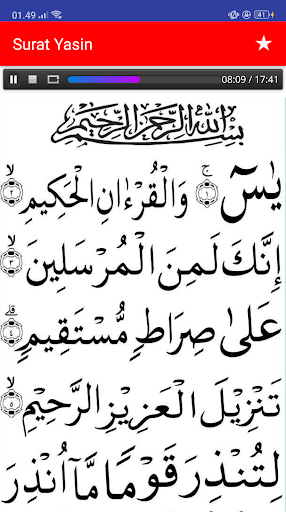 01.49
Surat Yasin
08:09 / 17:41
بِسْمِ اللَّهِ الرَّحْمٰنِ الرَّحِيْمِ
يٰسٓ ۚ ١ وَالْقُرْءَانِ الْحَكِيْمِ ۙ ٢
إِنَّكَ لَمِنَ الْمُرْسَلِيْنَ ۙ ٣
عَلىٰ صِرَاطٍ مُّسْتَقِيْمٍ ۗ ٤
تَنْزِيْلَ الْعَزِيْزِ الرَّحِيْمِ ۙ ٥
لِتُنْذِرَ قَوْمًا مَّآ أُنْذِرَ